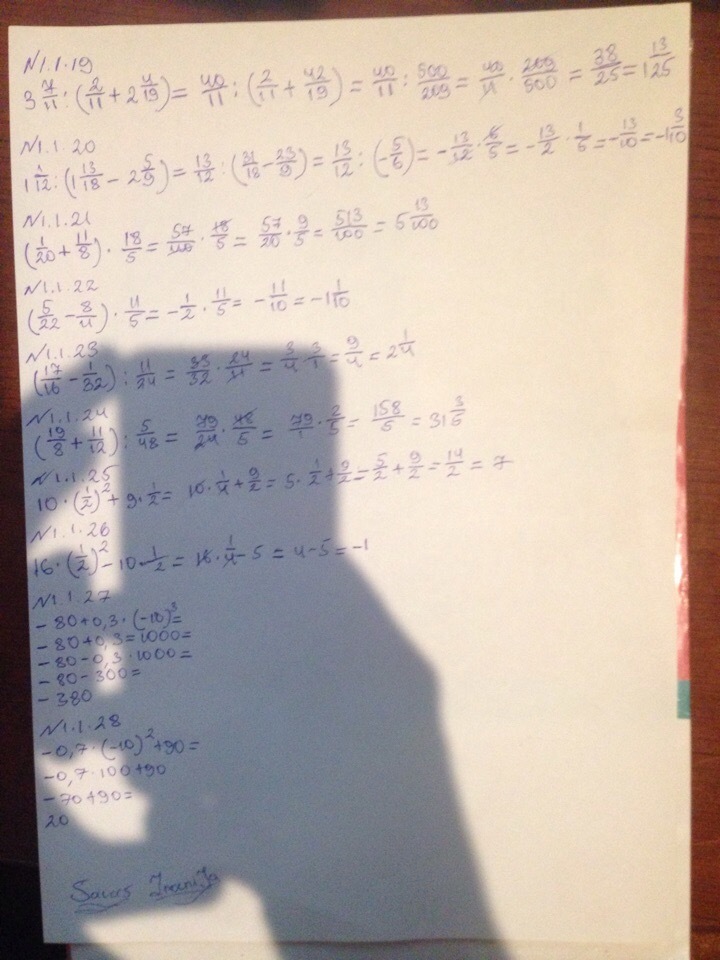 N1.1.19
3 7/11 : (2/11 + 2 4/19) = 40/11 : (2/11 + 42/19) = 40/11 : 500/209 = 40/11 · 209/500 = 38/25 = 1 13/25
N1.1.20
1 1/12 : (1 13/18 - 2 5/9) = 13/12 : (31/18 - 23/9) = 13/12 : (-5/6) = -13/12 · 6/5 = -13/2 · 1/5 = -13/10 = -1 3/10
N1.1.21
(1/20 + 11/8) · 18/5 = 57/40 · 18/5 = 57/20 · 9/5 = 513/100 = 5 13/100
N1.1.22
(5/22 - 8/11) · 11/5 = -1/2 · 11/5 = -11/10 = -1 1/10
N1.1.23
(17/16 - 1/32) : 11/24 = 33/32 · 24/11 = 3/4 · 3/1 = 9/4 = 2 1/4
N1.1.24
(19/8 + 11/12) : 5/48 = 79/24 · 48/5 = 79/1 · 2/5 = 158/5 = 31 3/5
N1.1.25
10 · (1/2)² + 9 · 1/2 = 10 · 1/4 + 9/2 = 5 · 1/2 + 9/2 = 5/2 + 9/2 = 14/2 = 7
N1.1.26
16 · (1/2)² - 10 · 1/2 = 16 · 1/4 - 5 = 4 - 5 = -1
N1.1.27
-80+0,3·(-10)³=
-80+0,3=1000=
-80-0,3·1000=
-80-300=
-380
N1.1.28
-0,7·(-10)²+90=
-0,7·100+90
-70+90=
20